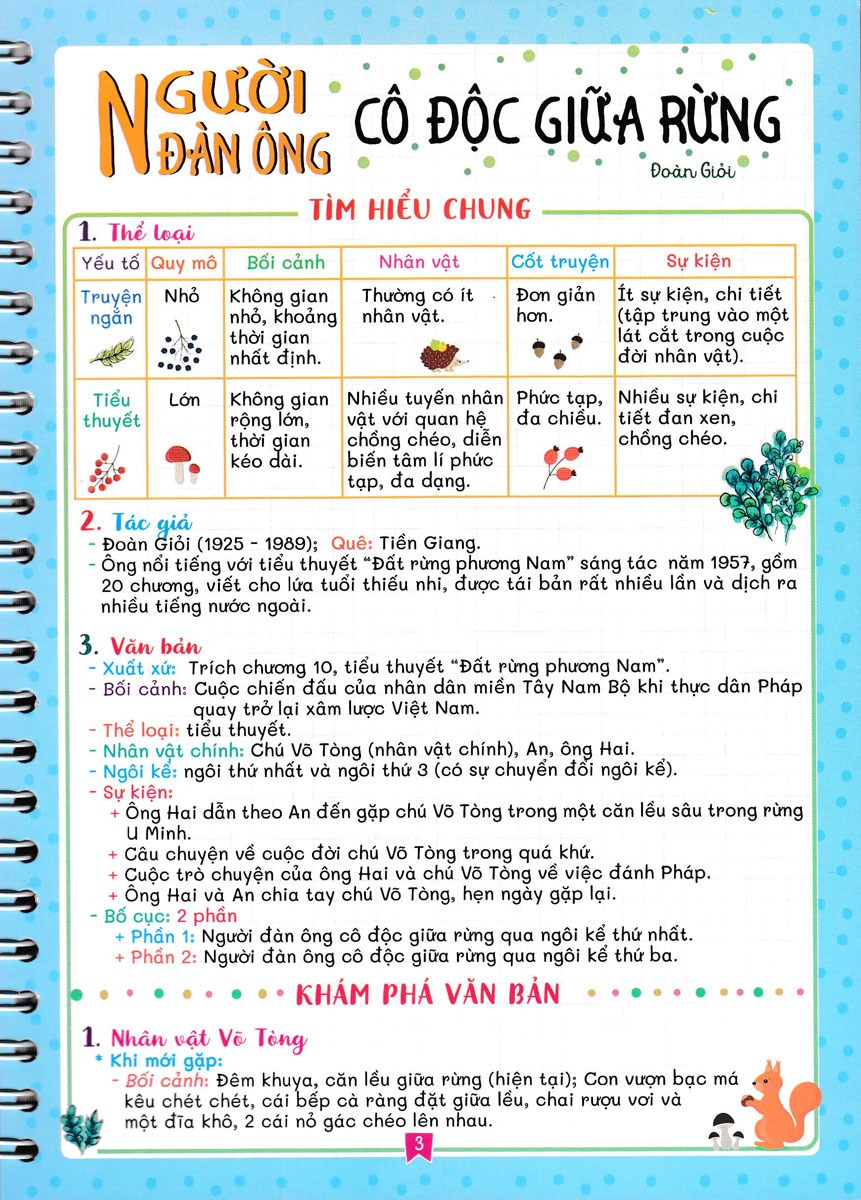 NGƯỜI ĐÀN ÔNG CÔ ĐỘC GIỮA RỪNG
Đoàn Giỏi
TÌM HIỂU CHUNG
1. Thể loại
Yếu tố Quy mô Bối cảnh Nhân vật Cốt truyện Sự kiện
Truyện ngắn
Nhỏ
Không gian
nhỏ, khoảng
thời gian
nhất định.
Thường có ít
nhân vật.
Đơn giản
hơn.
Ít sự kiện, chi tiết
(tập trung vào một
lát cắt trong cuộc
đời nhân vật).
Tiểu
thuyết
Lớn
Không gian
rộng lớn,
thời gian
kéo dài.
Nhiều tuyến nhân
vật với quan hệ
chồng chéo, diễn
biến tâm lí phức
tạp, đa dạng.
Phức tạp,
đa chiều.
Nhiều sự kiện, chi
tiết đan xen,
chồng chéo.
2. Tác giả
- Đoàn Giỏi (1925 - 1989); Quê: Tiền Giang.
- Ông nổi tiếng với tiểu thuyết “Đất rừng phương Nam” sáng tác năm 1957, gồm
20 chương, viết cho lứa tuổi thiếu nhi, được tái bản rất nhiều lần và dịch ra
nhiều tiếng nước ngoài.
3. Văn bản
- Xuất xứ: Trích chương 10, tiểu thuyết “Đất rừng phương Nam”.
- Bối cảnh: Cuộc chiến đấu của nhân dân miền Tây Nam Bộ khi thực dân Pháp
quay trở lại xâm lược Việt Nam.
- Thể loại: tiểu thuyết.
- Nhân vật chính: Chú Võ Tòng (nhân vật chính), An, ông Hai.
- Ngôi kể: ngôi thứ nhất và ngôi thứ 3 (có sự chuyển đổi ngôi kể).
- Sự kiện:
+ Ông Hai dẫn theo An đến gặp chú Võ Tòng trong một căn lều sâu trong rừng
U Minh.
+ Câu chuyện về cuộc đời chú Võ Tòng trong quá khứ.
+ Cuộc trò chuyện của ông Hai và chú Võ Tòng về việc đánh Pháp.
+ Ông Hai và An chia tay chú Võ Tòng, hẹn ngày gặp lại.
- Bố cục: 2 phần
+ Phần 1: Người đàn ông cô độc giữa rừng qua ngôi kể thứ nhất.
+ Phần 2: Người đàn ông cô độc giữa rừng qua ngôi kể thứ ba.
KHÁM PHÁ VĂN BẢN
1. Nhân vật Võ Tòng
* Khi mới gặp:
- Bối cảnh: Đêm khuya, căn lều giữa rừng (hiện tại); Con vượn bạc má
kêu chét chét, cái bếp cà ràng đặt giữa lều, chai rượu vơi và
một đĩa khô, 2 cái nỏ gác chéo lên nhau.
3